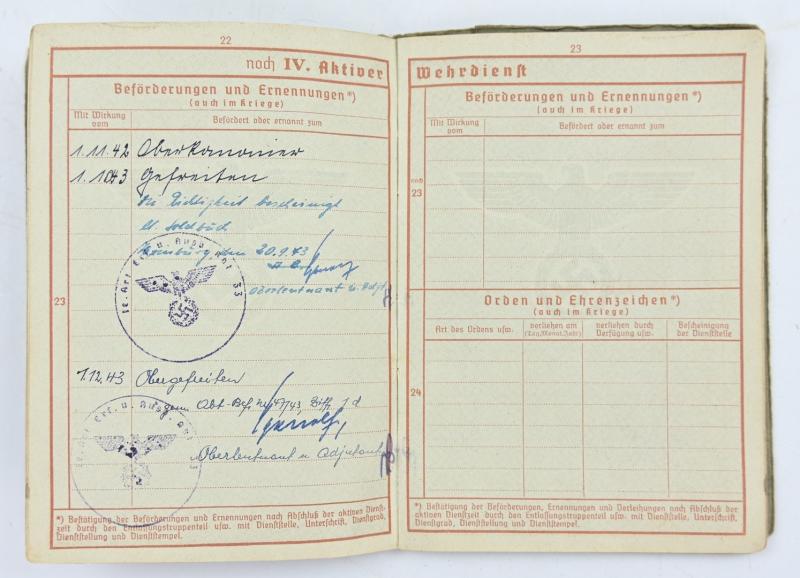 22
noch IV. Aktiver
Beförderungen und Ernennungen*)
(auch im Kriege)
Mit Wirkung vom
Befördert oder ernannt zum
1.11.42 Oberkanonier
1.1043 Gefreiten
Die Richtigkeit bescheinigt
lt. Soldbuch
den 20.9.43
Oberleutnant u. Adjt.
23
1.12.43 Obergefreiten
gem. Abt.-Bef. Nr. 47/43, Ziff. 1 d
Oberleutnant u. Adjutant
*) Bestätigung der Beförderungen und Ernennungen nach Abschluß der aktiven Dienst-
zeit durch den Entlassungstruppenteil usw. mit Dienststelle, Unterschrift, Dienstgrad,
Dienststellung und Dienststempel.
23
Wehrdienst
Beförderungen und Ernennungen*)
(auch im Kriege)
Mit Wirkung vom
Befördert oder ernannt zum
noch
23
Orden und Ehrenzeichen*)
(auch im Kriege)
Art des Ordens usw.
verliehen am
(Tag, Monat, Jahr)
verliehen durch
Verfügung usw.
Bescheinigung
der Dienststelle
24
*) Bestätigung der Beförderungen, Ernennungen und Verleihungen nach Abschluß der
aktiven Dienstzeit durch den Entlassungstruppenteil usw. mit Unterschrift,
Dienstgrad, Dienststellung und Dienststempel.